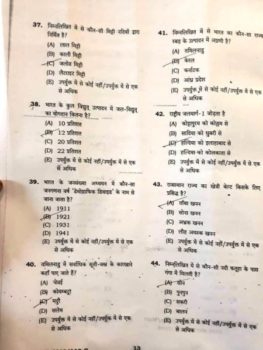 37. निम्नलिखित में से कौन-सी मिट्टी नदियों द्वारा
निर्मित है ?
(A) लाल मिट्टी
(B) काली मिट्टी
(C) जलोढ़ मिट्टी
(D) लैटराइट मिट्टी
(E) उपर्युक्त में से कोई नहीं/उपर्युक्त में से एक
से अधिक
38. भारत के कुल विद्युत् उत्पादन में जल-विद्युत्
का योगदान कितना है ?
(A) 10 प्रतिशत
(B) 12 प्रतिशत
(C) 20 प्रतिशत
(D) 22 प्रतिशत
(E) उपर्युक्त में से कोई नहीं/उपर्युक्त में से एक
से अधिक
39. भारत के जनसंख्या अध्ययन में कौन-सा
जनगणना वर्ष 'डेमोग्राफिक डिवाइड' के नाम से
जाना जाता है ?
(A) 1911
(B) 1921
(C) 1931
(D) 1941
(E) उपर्युक्त में से कोई नहीं/उपर्युक्त में से एक
से अधिक
40. तमिलनाडु में सर्वाधिक सूती-वस्त्र के कारखाने
कहाँ पाए जाते हैं ?
(A) चेन्नई
(B) कोयम्बटूर
(C) मदुरै
(D) सलेम
(E) उपर्युक्त में से कोई नहीं/उपर्युक्त में से एक
से अधिक
41. निम्नलिखित में से भारत का कौन-सा राज्य
रबड़ के उत्पादन में अग्रणी है ?
(A) तमिलनाडु
(B) केरल
(C) कर्नाटक
(D) आंध्र प्रदेश
(E) उपर्युक्त में से कोई नहीं/उपर्युक्त में से एक
से अधिक
42. राष्ट्रीय जलमार्ग-1 जोड़ता है
(A) कोट्टापुरम को कोल्लम से
(B) सादिया को धुबरी से
(C) हल्दिया को इलाहाबाद से
(D) हल्दिया को कोलकाता से
(E) उपर्युक्त में से कोई नहीं/उपर्युक्त में से एक
से अधिक
43. राजस्थान राज्य का खेत्री बेल्ट किसके लिए
प्रसिद्ध है ?
(A) ताँबा खनन
(B) सोना खनन
(C) अभ्रक खनन
(D) लौह अयस्क खनन
(E) उपर्युक्त में से कोई नहीं/उपर्युक्त में से एक
से अधिक
44. निम्नलिखित में से कौन-सी नदी फतुहा के पास
गंगा में मिलती है ?
(A)
(B) पुनपुन
(C) सकरी
(D) बालन
(E) उपर्युक्त में से कोई नहीं/उपर्युक्त में से एक
से अधिक
13